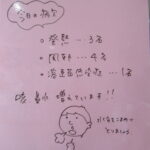 今日の病欠
・発熱…3名
・風邪…4名
・溶連菌感染症…1名
咳 鼻水 増えています!!